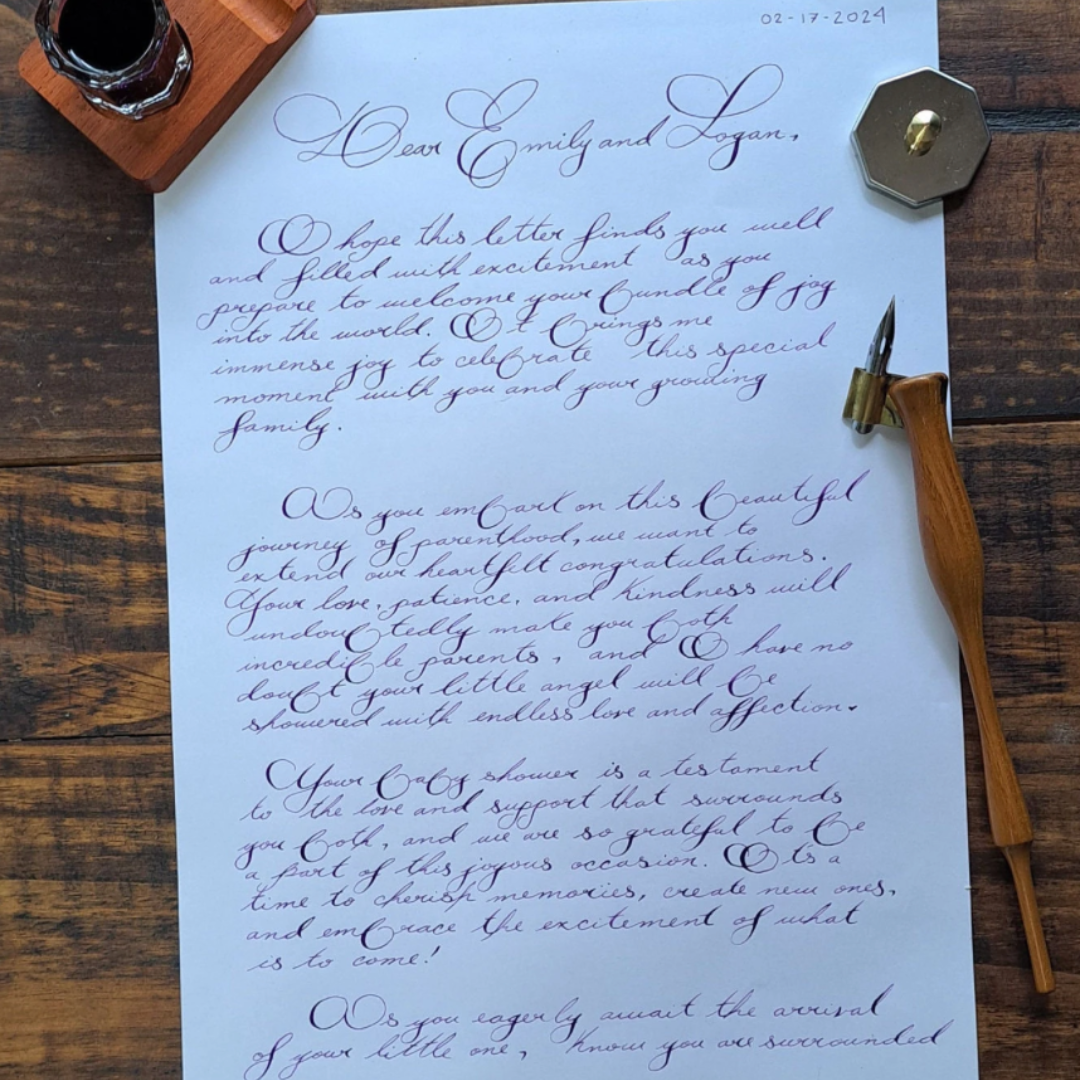 02-17-2024
Dear Emily and Logan,
I hope this letter finds you well
and filled with excitement as you
prepare to welcome your bundle of joy
into the world. It brings me
immense joy to celebrate this special
moment with you and your growing
family.
As you embark on this beautiful
journey of parenthood, we want to
extend our heartfelt congratulations.
Your love, patience, and kindness will
undoubtedly make you both
incredible parents, and I have no
doubt your little angel will be
showered with endless love and affection.
Your baby shower is a testament
to the love and support that surrounds
you both, and we are so grateful to be
a part of this joyous occasion. Its a
time to cherish memories, create new ones,
and embrace the excitement of what
is to come!
As you eagerly await the arrival
of your little one, know you are surrounded